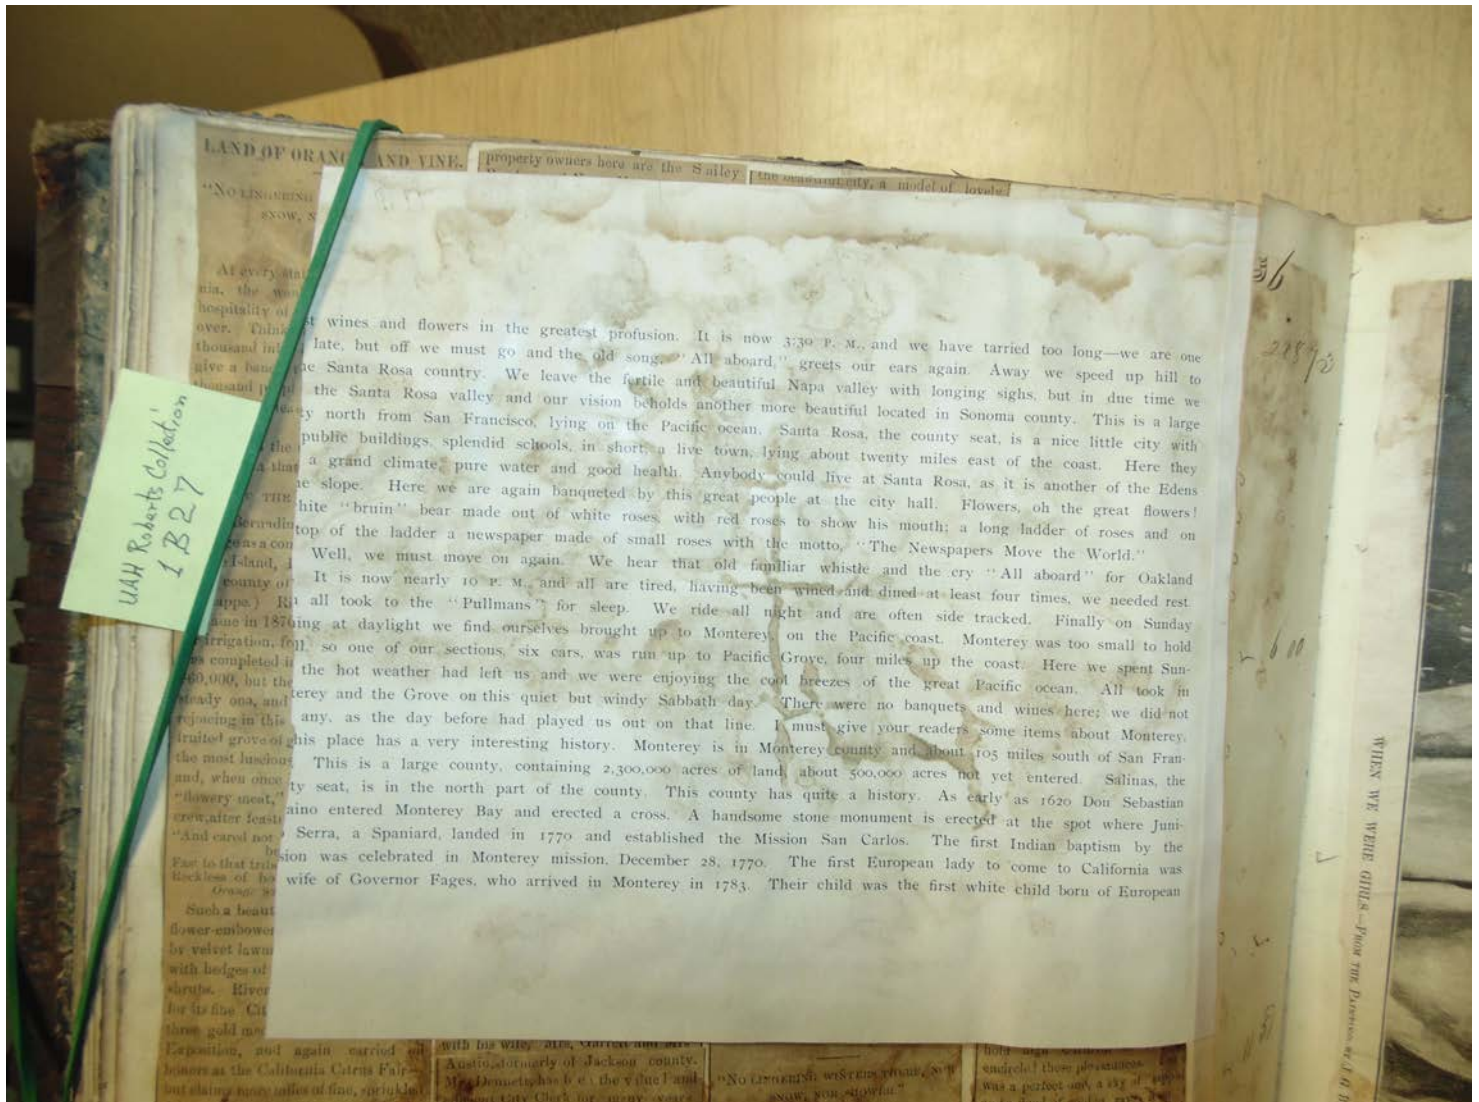 LAND OF ORANGE AND VINE.
"NO LINGERING
SNOW,
At every
nia, the
hospitality of
over. Think
thousand
give a
thousand
property owners here are the Sailey
the beautiful city, a model of lovely
UAH Roberts Collection
1 B 27
st wines and flowers in the greatest profusion. It is now 3:30 P. M., and we have tarried too long—we are one
late, but off we must go and the old song, "All aboard," greets our ears again. Away we speed up hill to
he Santa Rosa country. We leave the fertile and beautiful Napa valley with longing sighs, but in due time we
the Santa Rosa valley and our vision beholds another more beautiful located in Sonoma county. This is a large
y north from San Francisco, lying on the Pacific ocean. Santa Rosa, the county seat, is a nice little city with
public buildings, splendid schools, in short, a live town, lying about twenty miles east of the coast. Here they
a grand climate, pure water and good health. Anybody could live at Santa Rosa, as it is another of the Edens
e slope. Here we are again banqueted by this great people at the city hall. Flowers, oh the great flowers!
hite "bruin" bear made out of white roses, with red roses to show his mouth; a long ladder of roses and on
top of the ladder a newspaper made of small roses with the motto, "The Newspapers Move the World."
Well, we must move on again. We hear that old familiar whistle and the cry "All aboard" for Oakland
It is now nearly 10 P. M., and all are tired, having been wined and dined at least four times, we needed rest
all took to the "Pullmans" for sleep. We ride all night and are often side tracked. Finally on Sunday
ing at daylight we find ourselves brought up to Monterey, on the Pacific coast. Monterey was too small to hold
ll, so one of our sections, six cars, was run up to Pacific Grove, four miles up the coast. Here we spent Sun-
the hot weather had left us and we were enjoying the cool breezes of the great Pacific ocean. All took in
terey and the Grove on this quiet but windy Sabbath day. There were no banquets and wines here; we did not
any, as the day before had played us out on that line. I must give your readers some items about Monterey.
his place has a very interesting history. Monterey is in Monterey county and about 105 miles south of San Fran-
This is a large county, containing 2,300,000 acres of land, about 500,000 acres not yet entered. Salinas, the
ty seat, is in the north part of the county. This county has quite a history. As early as 1620 Don Sebastian
aino entered Monterey Bay and erected a cross. A handsome stone monument is erected at the spot where Juni-
Serra, a Spaniard, landed in 1770 and established the Mission San Carlos. The first Indian baptism by the
sion was celebrated in Monterey mission, December 28, 1770. The first European lady to come to California was
wife of Governor Fages, who arrived in Monterey in 1783. Their child was the first white child born of European
county of
irrigation,
completed
60,000, but the
rejoicing in this
fruited grove of
the most luscious
and, when once
"flowery meat,"
crew, after
"And cared not
Reckless of
Orange
Such a beaut
flower-embower
by velvet lawns
with hedges of
shrubs. River
for its fine Cit
three gold me
Exposition, and again carried off
honors as the California Citrus Fair
but claims more miles of fine, sprinkled
with his wife,
Austin, formerly of Jackson county.
"NO LINGERING WINTERS THERE, NOR
SNOW, NOR SHOWER."
encircled these pleasances.
was a perfect one, a sky of
WHEN WE WERE GIRLS—FROM THE PAINTING BY J. G.